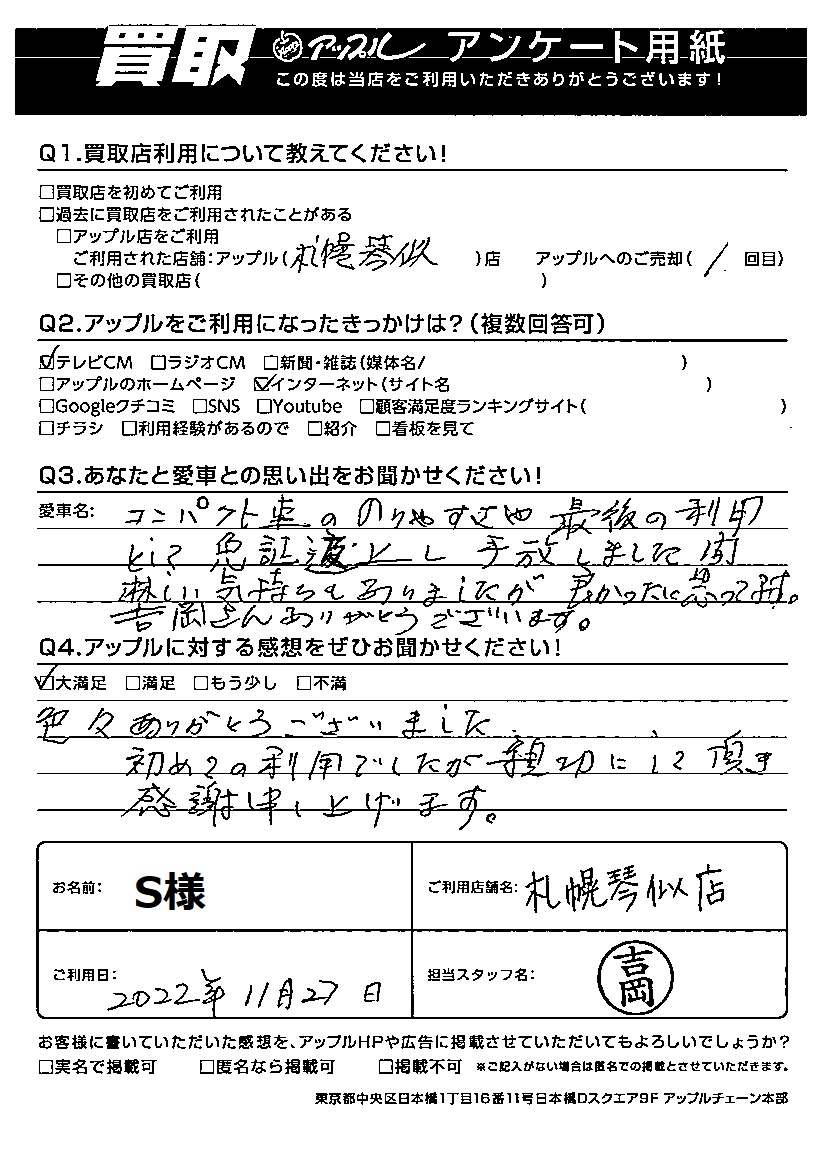 買取 アップル アンケート用紙
この度は当店をご利用いただきありがとうございます!
Q1.買取店利用について教えてください!
□買取店を初めてご利用
□過去に買取店をご利用されたことがある
□アップル店をご利用
ご利用された店舗:アップル(札幌琴似)店 アップルへのご売却(/回目)
□その他の買取店( )
Q2.アップルをご利用になったきっかけは?(複数回答可)
☑テレビCM □ラジオCM □新聞・雑誌(媒体名/ )
□アップルのホームページ ☑インターネット(サイト名 )
□Googleクチコミ □SNS □Youtube □顧客満足度ランキングサイト( )
□チラシ □利用経験があるので □紹介 □看板を見て
Q3.あなたと愛車との思い出をお聞かせください!
愛車名: コンパクト車ののりやすさや最後の利用
として免許証返上し手放しました
淋しい気持ちもありましたが良かったと思ってます。
吉岡さんありがとうございます。
Q4.アップルに対する感想をぜひお聞かせください!
☑大満足 □満足 □もう少し □不満
色々ありがとうございました
初めての利用でしたが親切にして頂き
感謝申し上げます。
お名前: S様
ご利用店舗名: 札幌琴似店
ご利用日: 2022年11月27日
担当スタッフ名: 吉岡
お客様に書いていただいた感想を、アップルHPや広告に掲載させていただいてもよろしいでしょうか?
□実名で掲載可 □匿名なら掲載可 □掲載不可 ※ご記入がない場合は匿名での掲載とさせていただきます。
東京都中央区日本橋1丁目16番11号日本橋Dスクエア9F アップルチェーン本部